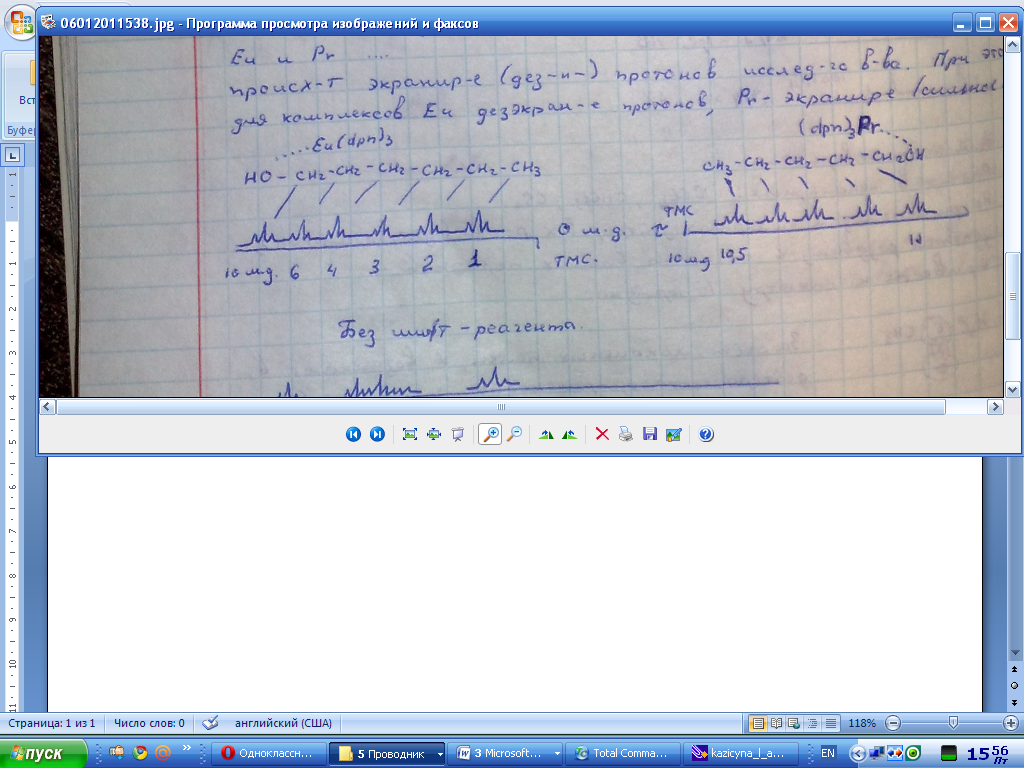 06012011538.jpg - Программа просмотра изображений и факсов
Вст
Буфер
Eu и Pr ....
происх-т экранир-е (дез-н-) протонов исслед-го в-ва. При это
для комплексов Eu дезэкран-е протонов, Pr - экранире /сильное
......Eu(dpn)3
(dpn)3Pr......
HO - CH2 - CH2 - CH2 - CH2 - CH2 - CH3
CH3 - CH2 - CH2 - CH2 - CH2OH
10 м.д. 6 4 3 2 1
0 м.д.
ТМС.
τ
ТМС
10 мд 10,5
Без шифт - реагента.
Страница: 1 из 1
Число слов: 0
английский (США)
118%
пуск
Одноклассн...
5 Проводник
3 Microsoft...
Total Comma...
kazicyna_l_a...
EN
15 56
Пт